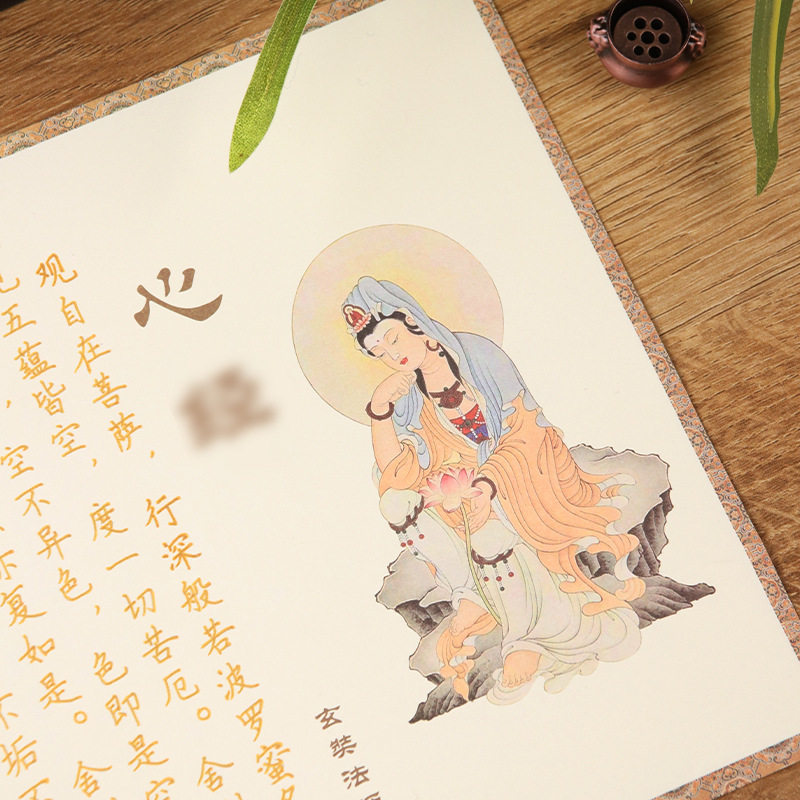 心
玄奘法
观自在菩萨，行深般若波罗蜜
五蕴皆空，度一切苦厄。舍
，空不异色，色即是空
亦复如是。舍
不垢不